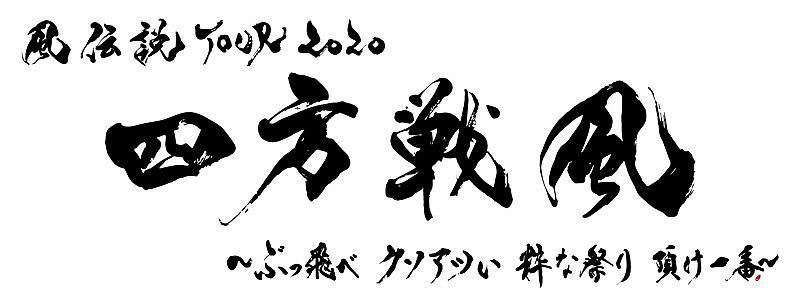 風伝説 TOUR 2020
四方戦風
～ぶっ飛べ クソアツい 粋な祭り 頂け一番～